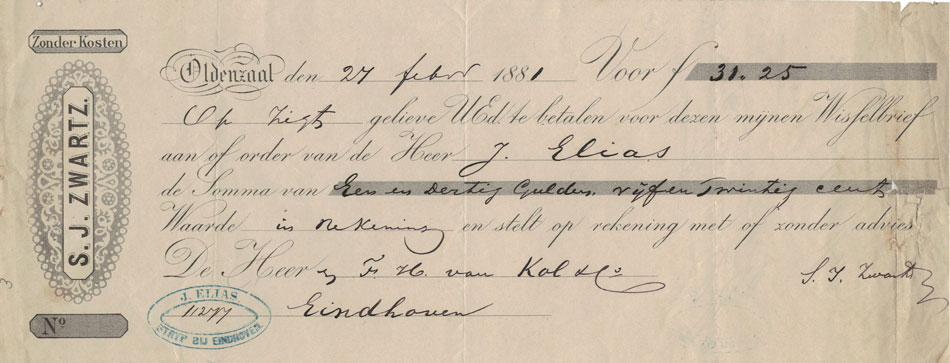 Zonder Kosten
S. J. ZWARTZ.
Nº
Oldenzaal den 27 febr 1881 Voor f 31.25
Op Zigt gelieve UEd. te betalen voor dezen mijnen Wisselbrief
aan of order van de Heer J. Elias
de Somma van Een en Dertig Gulden vyf en Twintig cent
Waarde in Rekening en stelt op rekening met of zonder advies
De Heer F. H. van Kol & Co
S. J. Zwartz
Eindhoven
J. ELIAS.
11277
STRYP BIJ EINDHOVEN